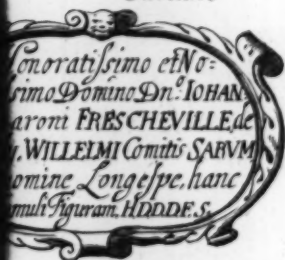 onoratiſsimo et No=
ſsimo Domino Dn.º IOHAN
aroni FRESCHEVILLE, de
WILLELMI Comitis SARVM
omine Longeſpe, hanc
muli Figuram, H.D.D.D.E.S.